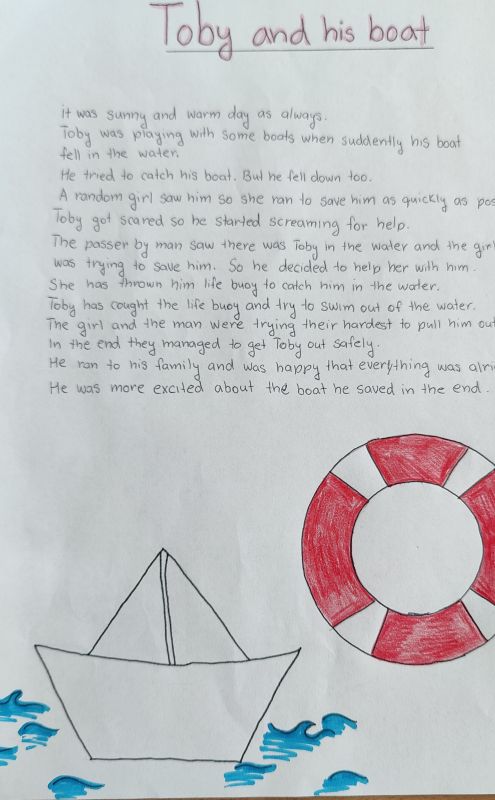 Toby and his boat
it was sunny and warm day as always.
Toby was playing with some boats when suddently his boat
fell in the water.
He tried to catch his boat. But he fell down too.
A random girl saw him so she ran to save him as quickly as pos
Toby got scared so he started screaming for help.
The passer by man saw there was Toby in the water and the girl
was trying to save him. So he decided to help her with him.
She has thrown him life buoy to catch him in the water.
Toby has cought the life buoy and try to swim out of the water.
The girl and the man were trying their hardest to pull him out
In the end they managed to get Toby out safely.
He ran to his family and was happy that everything was alri
He was more excited about the boat he saved in the end.